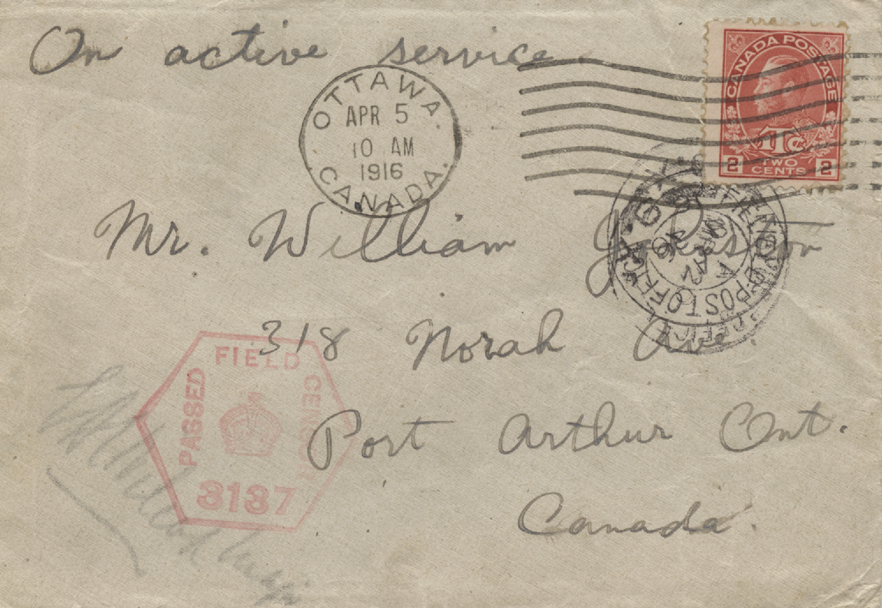 On active service
OTTAWA.
APR 5
10 AM
1916
CANADA.
CANADA POSTAGE
1Tc
2 TWO CENTS 2
Mr. William
318 Norah Ave
Port Arthur Ont.
Canada.
FIELD POST OFFICE
PASSED FIELD
3137